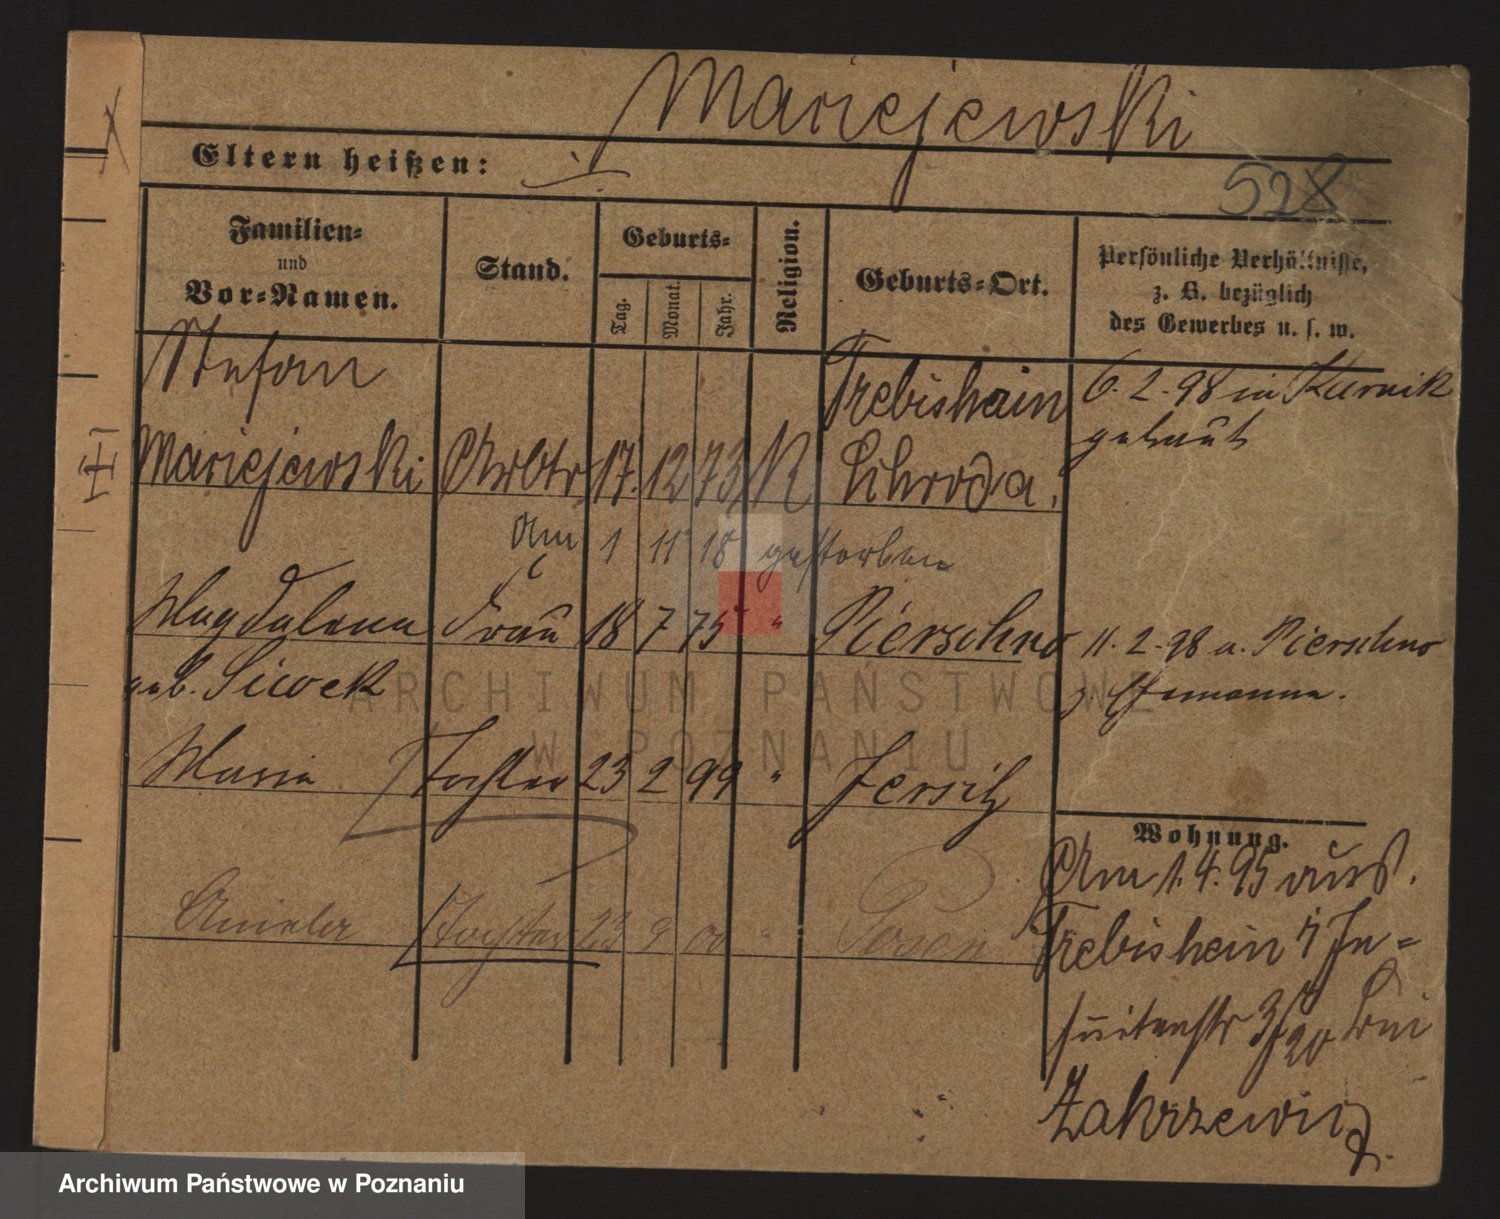 Mariejewski
Eltern heißen:
528
Familien=
und
Vor=Namen.
Stand.
Geburts=
Tag.
Monat.
Jahr.
Religion.
Geburts=Ort.
Persönliche Verhältnisse,
z. B. bezüglich
des Gewerbes u. s. w.
Stefan
Mariejewski Arbtr. 17. 12 73 K
Trebisheim
Schroda.
6. 2. 98 in Kurnik
getraut
Am 1 11 18 gestorben
Magdalena Frau 18 7 75 " Pierschno
geb. Siwek
11. 2. 98 a. Pierschno
Maria Tochter 23 2 99 " Jersitz
Aniela Tochter 23 9 00 " Posen
Wohnung.
Am 1. 4. 95 aus
Trebisheim Je=
suitenstr 20 bei
Zakrzewicz.
ARCHIWUM PAŃSTWOWE
W POZNANIU
Archiwum Państwowe w Poznaniu